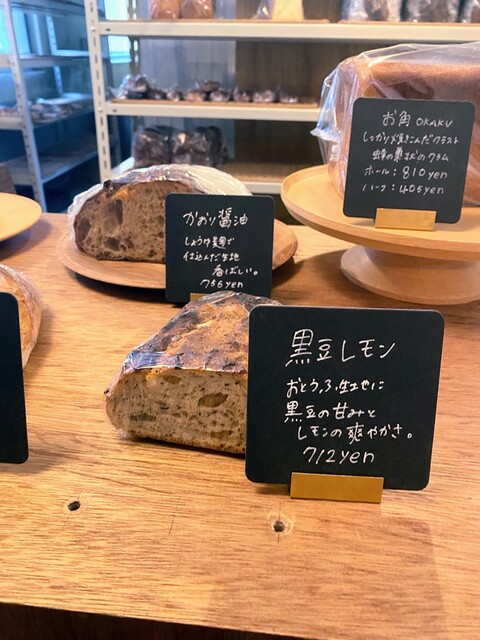 お角 OKAKU
しっかり焼きこんだクラスト
ホール：810yen
ハーフ：405yen
かおり醤油
しょうゆ麹で
仕込んだ生地
香ばしい。
756yen
黒豆レモン
おとうふ生地に
黒豆の甘みと
レモンの爽やかさ。
712yen